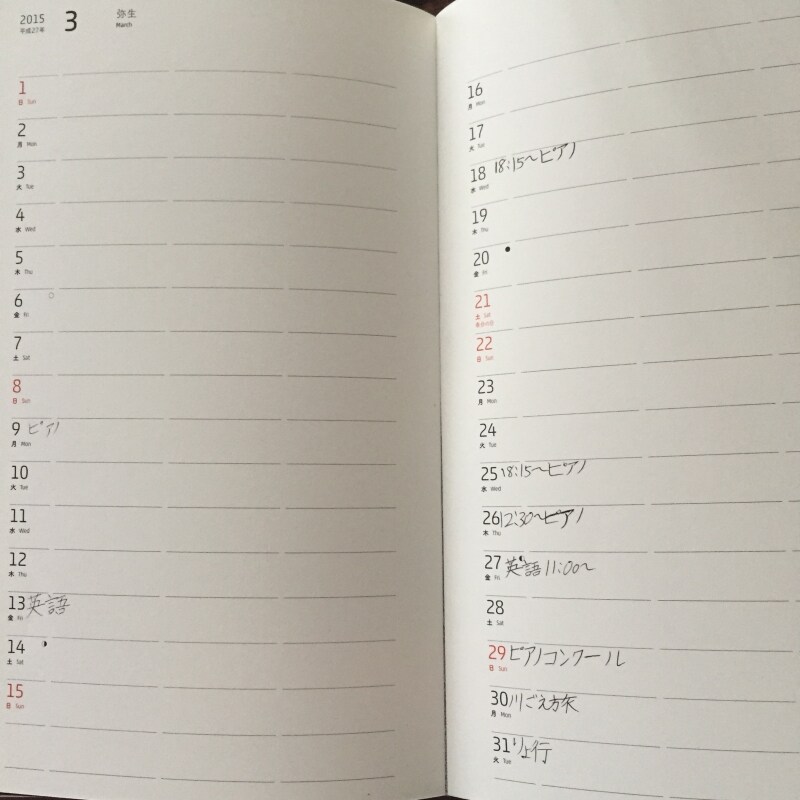 2015 3 弥生
平成27年 March
1
日 Sun
2
月 Mon
3
火 Tue
4
水 Wed
5
木 Thu
6
金 Fri
7
土 Sat
8
日 Sun
9 ピアノ
月 Mon
10
火 Tue
11
水 Wed
12
木 Thu
13 英語
金 Fri
14
土 Sat
15
日 Sun
16
月 Mon
17
火 Tue
18 18:15〜ピアノ
水 Wed
19
木 Thu
20
金 Fri
21
土 Sat
春分の日
22
日 Sun
23
月 Mon
24
火 Tue
25 18:15〜ピアノ
水 Wed
26 12:30〜ピアノ
木 Thu
27 英語 11:00〜
金 Fri
28
土 Sat
29 ピアノコンクール
日 Sun
30 川ごえ旅
月 Mon
31 りょ行
火 Tue